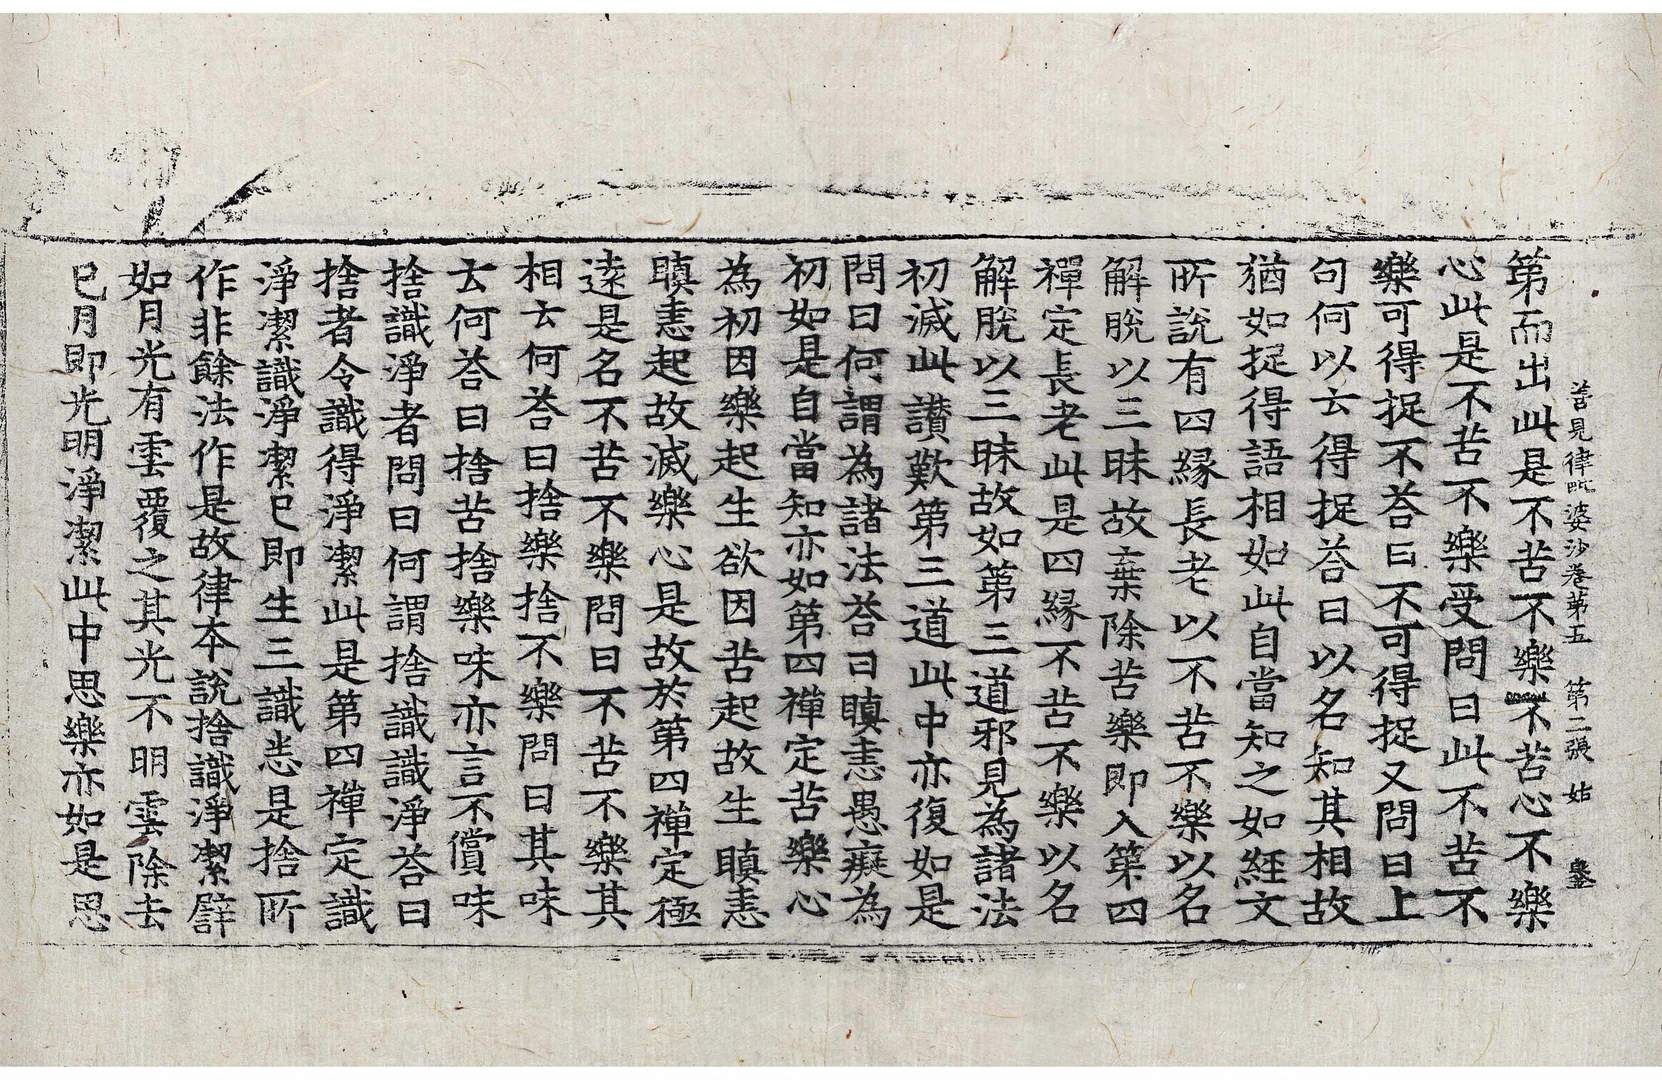 善見律毗婆沙卷第五 第二張 姑
第而出此是不苦不樂不苦心不樂
心此是不苦不樂受問曰此不苦不
樂可得捉不荅曰不可得捉又問曰上
句何以云得捉荅曰以名知其相故
猶如捉得語相如此自當知之如經文
所說有四緣長老以不苦不樂以名
解脫以三昧故棄除苦樂即入第四
禪定長老此是四緣不苦不樂以名
解脫以三昧故如第三道邪見為諸法
初滅此讃歎第三道此中亦復如是
問曰何謂為諸法荅曰瞋恚愚癡為
初如是自當知亦如第四禪定苦樂心
為初因樂起生欲因苦起故生瞋恚
瞋恚起故滅樂心是故於第四禪定極
遠是名不苦不樂問曰不苦不樂其
相云何荅曰捨樂捨不樂問曰其味
云何荅曰捨苦捨樂味亦言不償味
捨識淨者問曰何謂捨識識淨荅曰
捨者令識得淨潔此是第四禪定識
淨潔識淨潔已即生三識悉是捨所
作非餘法作是故律本說捨識淨潔譬
如月光有雲覆之其光不明雲除去
已月即光明淨潔此中思樂亦如是思